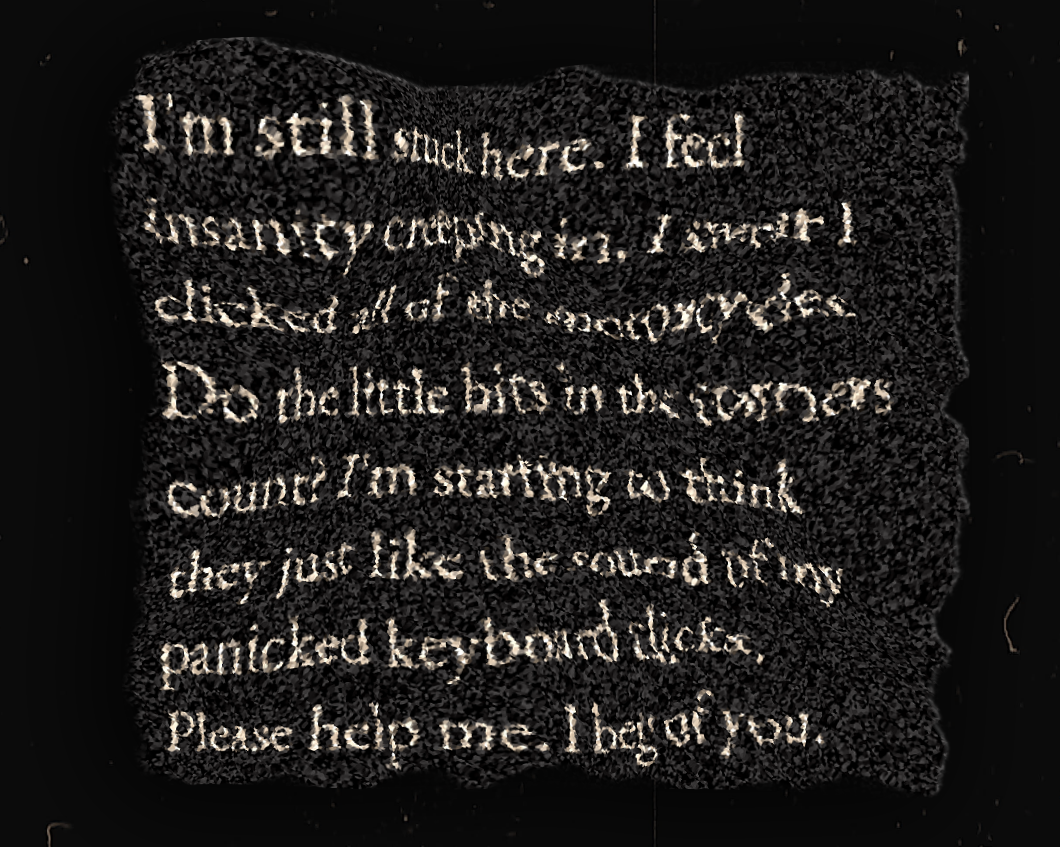 I'm still stuck here. I feel
insanity creeping in. I swear I
clicked all of the motorcycles.
Do the little bits in the corners
count? I'm starting to think
they just like the sound of my
panicked keyboard clicks.
Please help me. I beg of you.